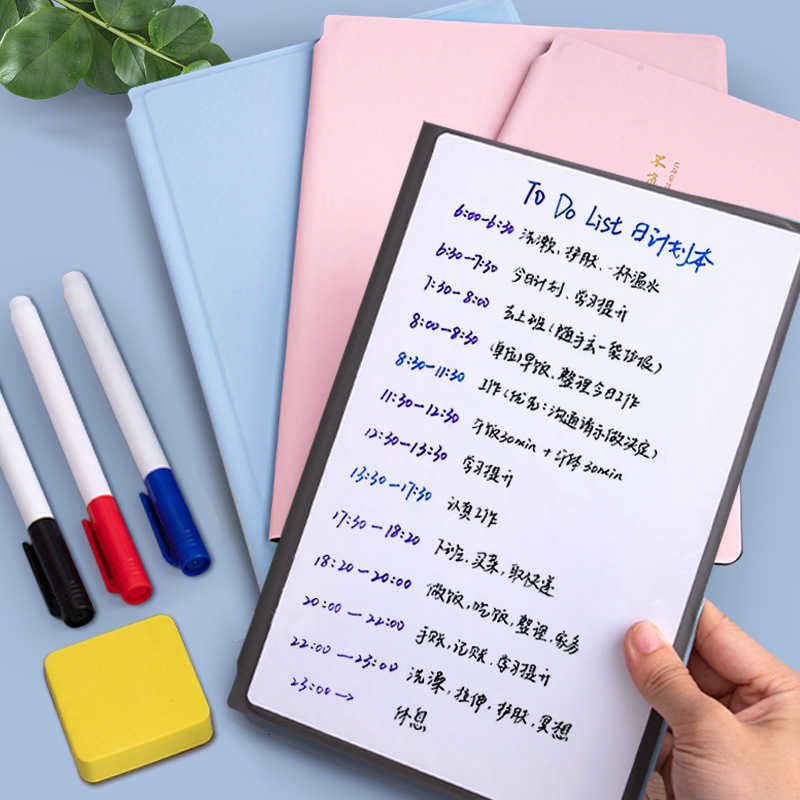 To Do List 日计划本
6:00-6:30 洗漱、护肤、一杯温水
6:30-7:30 今日计划、学习提升
7:30-8:00 去上班(随手丢一袋垃圾)
8:00-8:30 (单位)早饭、整理今日工作
8:30-11:30 工作(优先:沟通请示做决定)
11:30-12:30 午饭30min+午休30min
12:30-13:30 学习提升
13:30-17:30 认真工作
17:30-18:20 下班,买菜,取快递
18:20-20:00 做饭,吃饭,整理,家务
20:00-22:00 手账,记账,学习提升
22:00-23:00 洗澡,拉伸,护肤,冥想
23:00→ 休息